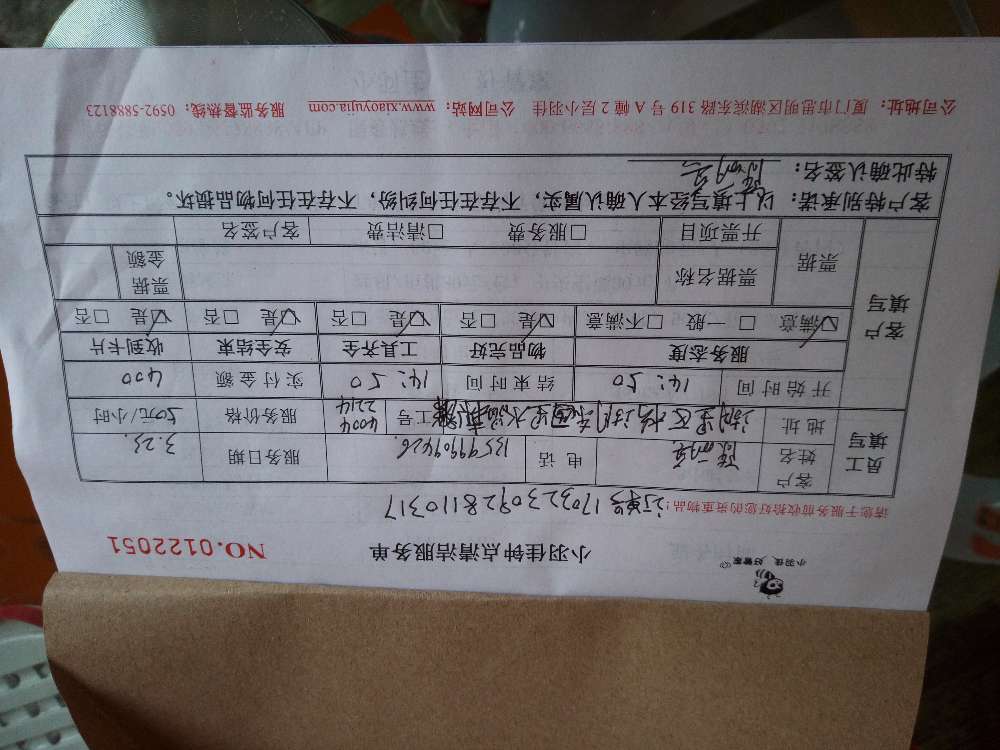 小羽佳 好管家
小羽佳钟点清洁服务单 NO.0122051
请您于服务前收拾好您的贵重物品!
订单号170323092811 0317
员工填写 客户姓名 陈 电话 13599909426 服务日期 3.23.
地址 湖里区 工号 4004 2214 服务价格 50元/小时
开始时间 14:50 结束时间 14:50 实付金额 400
客户填写 服务态度 物品完好 工具齐全 安全结束 收到卡片
☑满意 □一般 □不满意 ☑是 □否 ☑是 □否 ☑是 □否 ☑是 □否
票据 票据名称 票据金额
开票项目 □服务费 □清洁费 客户签名
客户特别承诺:以上填写经本人确认属实,不存在任何纠纷,不存在任何物品损坏。
特此确认签名:
公司地址:厦门市思明区湖滨东路 319 号 A 幢 2 层小羽佳 公司网站:www.xiaoyujia.com 服务监督热线:0592-5888123